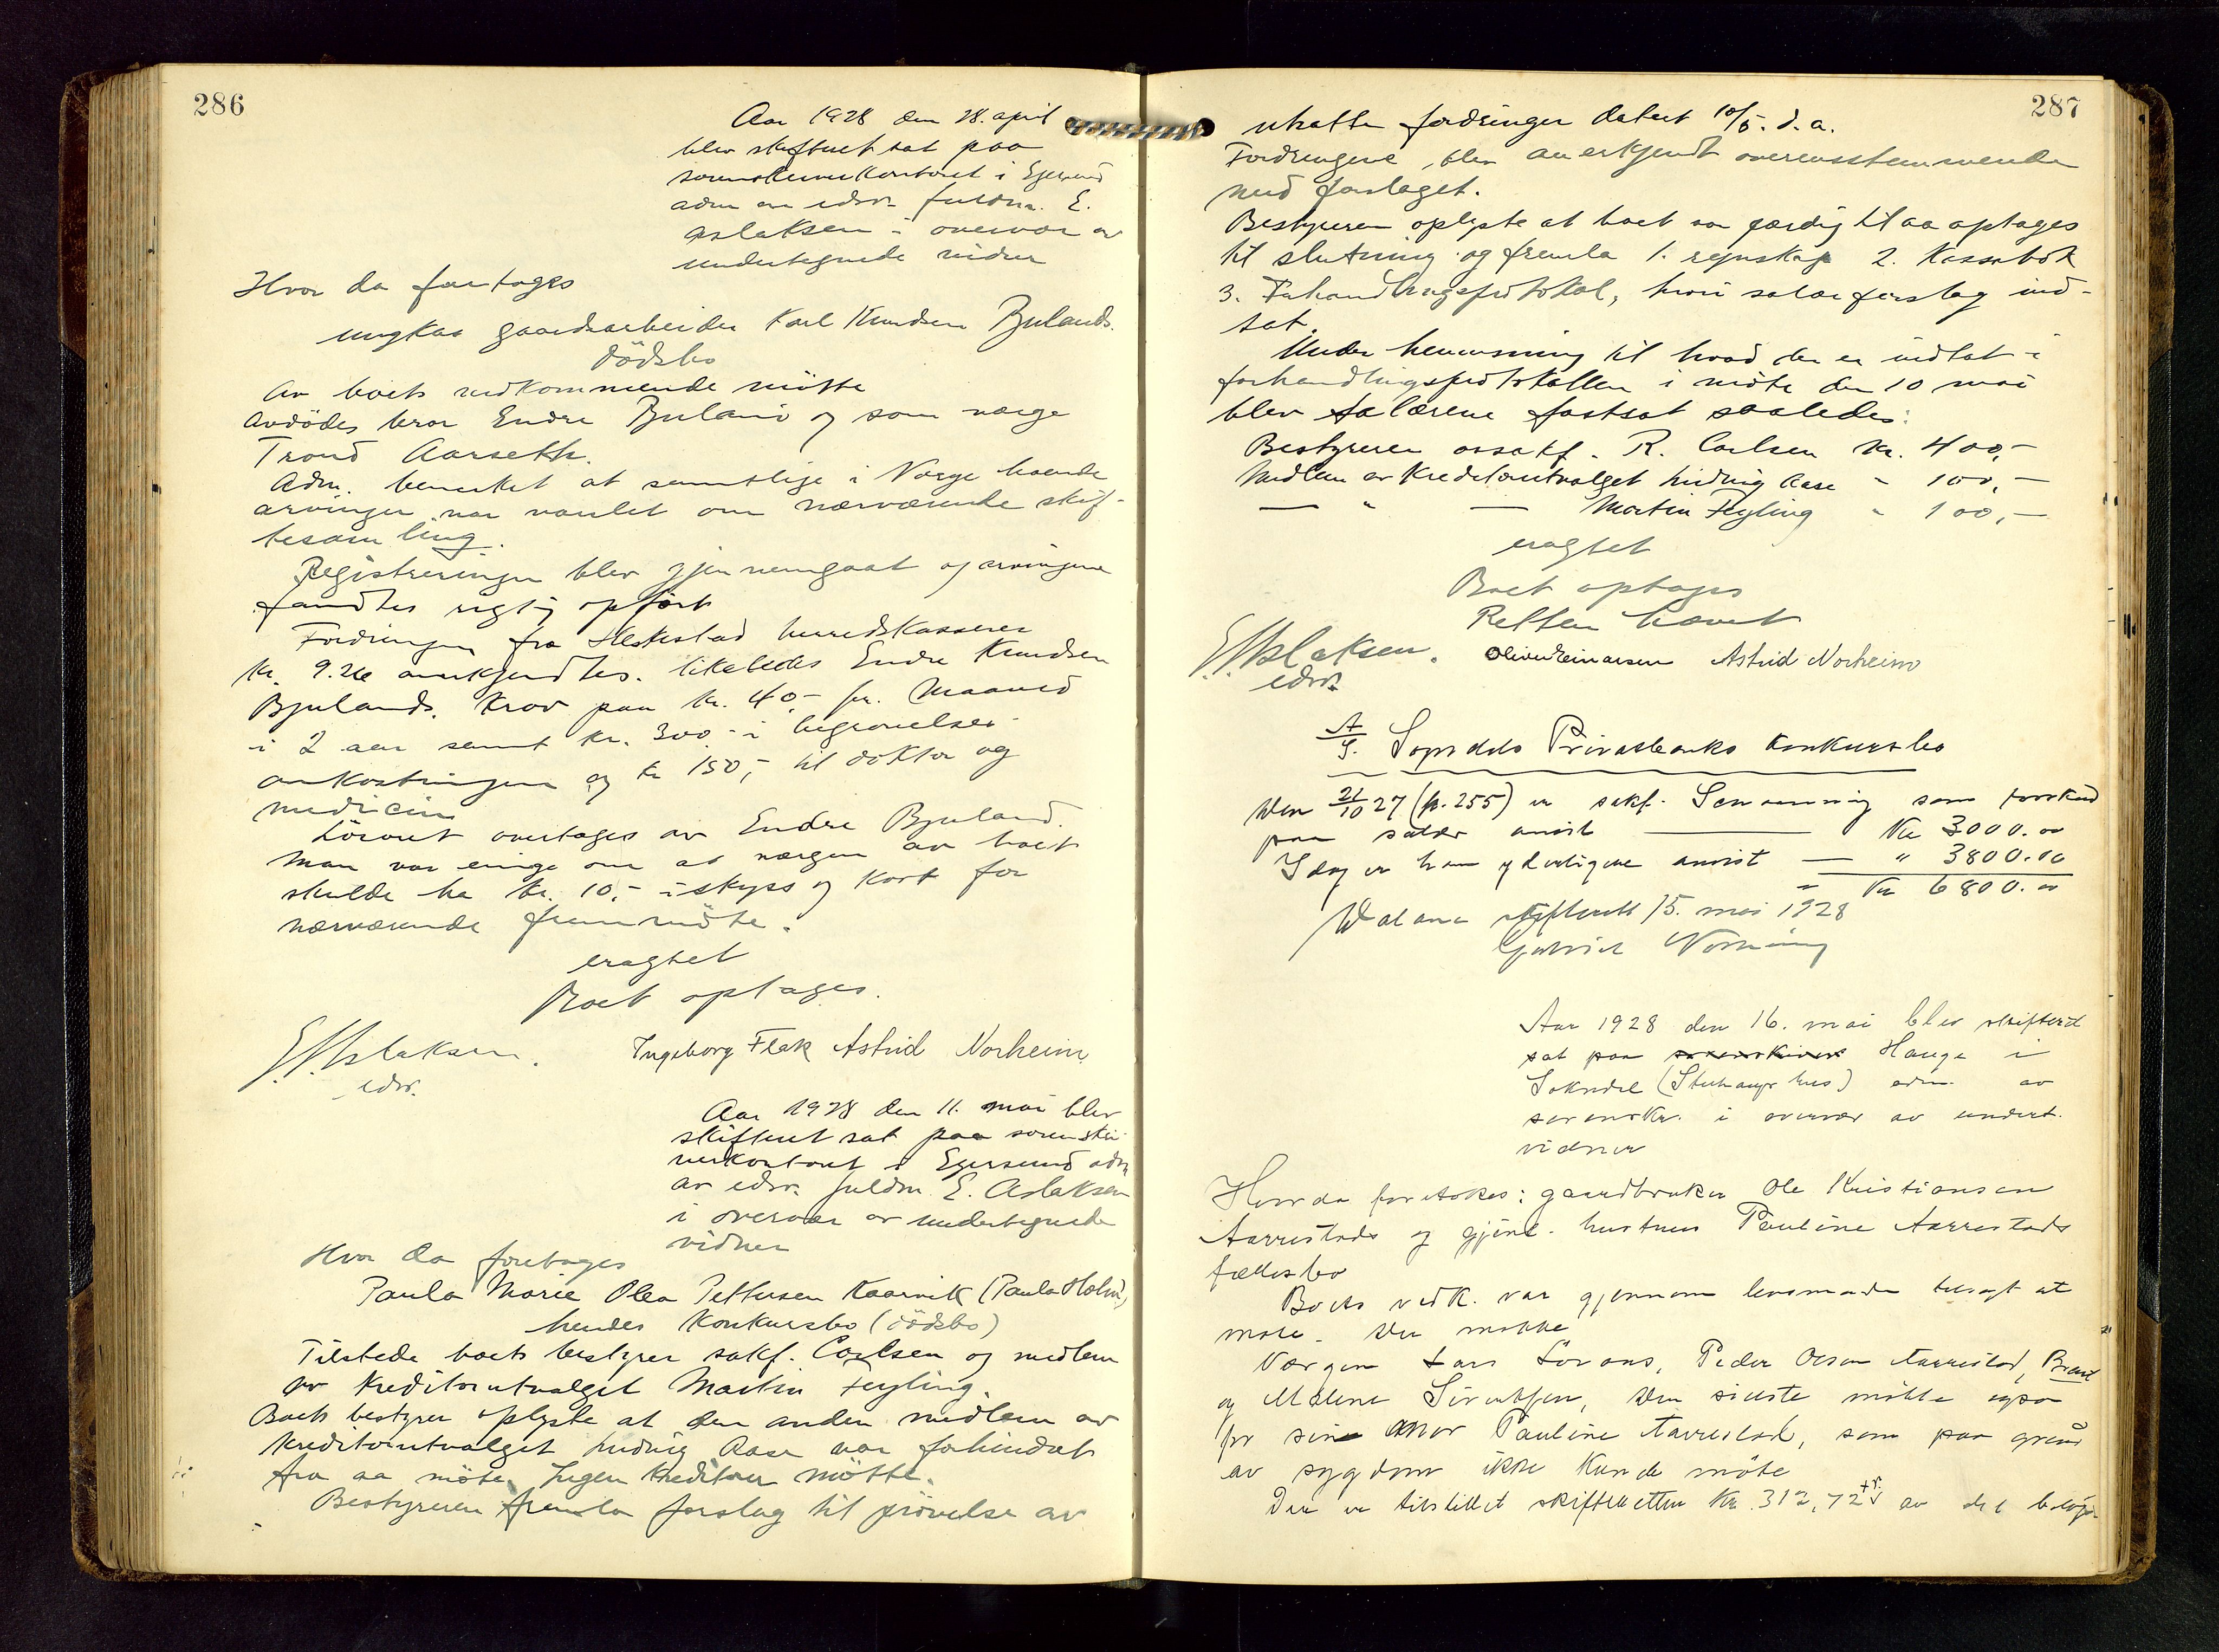 286
Aar 1928 den 28. april
blev skifteret sat paa
sorenskriverkontoret i Egersund
adm av edsv. fuldm. E.
Aslaksen i overvær av
undertegnede vidner
Hvor da foretages
ungkar gaardsarbeider Karl Knudsen Bjulands
dödsbo
Av boets vedkommende mötte
avdödes bror Endre Bjuland og som værge
Trond Aarseth.
Adm. bemerket at samtlige i Norge boende
arvinger var varslet om nærværende skif-
tesamling.
Registreringen blev gjennemgaat og arvingene
fandtes rigtig opfört
Fordringen fra Heskestad herredskasserer
kr. 9.26 anerkjendtes. likeledes Endre Knudsen
Bjulands. Krav paa kr. 40,- pr. Maaned
i 2 aar samt kr. 300.- i begravelses-
omkostninger og kr 150,- til doktor og
medicin
Lösöret overtages av Endre Bjuland.
Man var enige om at værgen av boet
skulde ha kr. 10,- i skyss og kost for
nærværende fremmöte.
eragtet
Boet optages.
E. Aslaksen.
edsv.
Ingeborg Flak Astrid Norheim
Aar 1928 den 11. mai blev
skifteret sat paa sorenskri-
verkontoret i Egersund adm
av edsv. fuldm. E. Aslaksen
i overvær av undertegnede
vidner
Hvor da foretages
Paula Marie Olea Pettersen Kaarvik (Paula Holm)
hendes Konkursbo (dödsbo)
Tilstede boets bestyrer sakf. Carlsen og medlem
av kreditorutvalget Martin Feyling.
Boets bestyrer oplyste at den anden medlem av
kreditorutvalget Ludvig Aase var forhindret
fra aa möte. Ingen kreditorer mötte.
Bestyreren fremla forslag til prövelse av
287
utsatte fordringer datert 10/5. d.a.
Fordringene blev anerkjendt overensstemmende
med forslaget.
Bestyreren oplyste at boet var færdig til aa optages
til slutning og fremla 1. regnskap 2. Kassabok
3. Forhandlingsprotokol, hvori salærforslag ind-
sat.
Under henvisning til hvad der er indtat i
forhandlingsprotokollen i möte den 10 mai
blev salærene fastsat saaledes:
Bestyreren orsakf. R. Carlsen kr. 400,-
Medlem av kreditorutvalget Ludvig Aase " 100,-
— " — Martin Feyling " 100,-
eragtet
Boet optages
Retten hævet
E. Aslaksen.
edsv.
Oliver Reinarsen Astrid Norheim
A/S. Sogndals Privatbanks Konkursbo
Den 21/10 27 (p. 255) er sakf. Schanning som forskud
paa salær anvist — Kr 3000.00
Idag er ham yderligere anvist — " 3800.00
= Kr 6800.00
Dalane skifterett 15. mai 1928
Gabriel
Aar 1928 den 16. mai blev skifteret
sat paa sorenskriver Hauge i
Sokndal adm. av
sorenskr. i overvær av undert.
vidner
Hvor da foretokes: gaardbruker Ole Kristiansen
Aarrestads og gjenl. hustrus Pauline Aarrestads
fællesbo
Boets vedk. var gjennem lensmanden tilsagt at
möte. Der mötte
Værgen Lars Lovaas, Peder Olsen Aarrestad,
og Malene Sivertsen, Den sidste mötte ogsaa
for sin mor Pauline Aarrestad, som paa grund
av sygdom ikke kunde möte
Der er tilstillet skifteretten Kr. 312,72 av det belöp